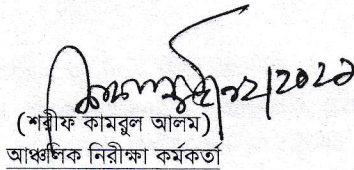 (শরীফ কামরুল আলম)
আঞ্চলিক নিরীক্ষা কর্মকর্তা